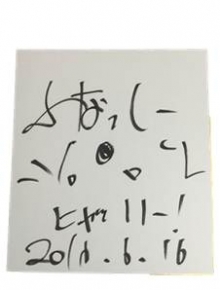 ふなっしー
ヒャッハー!
2016.6.16